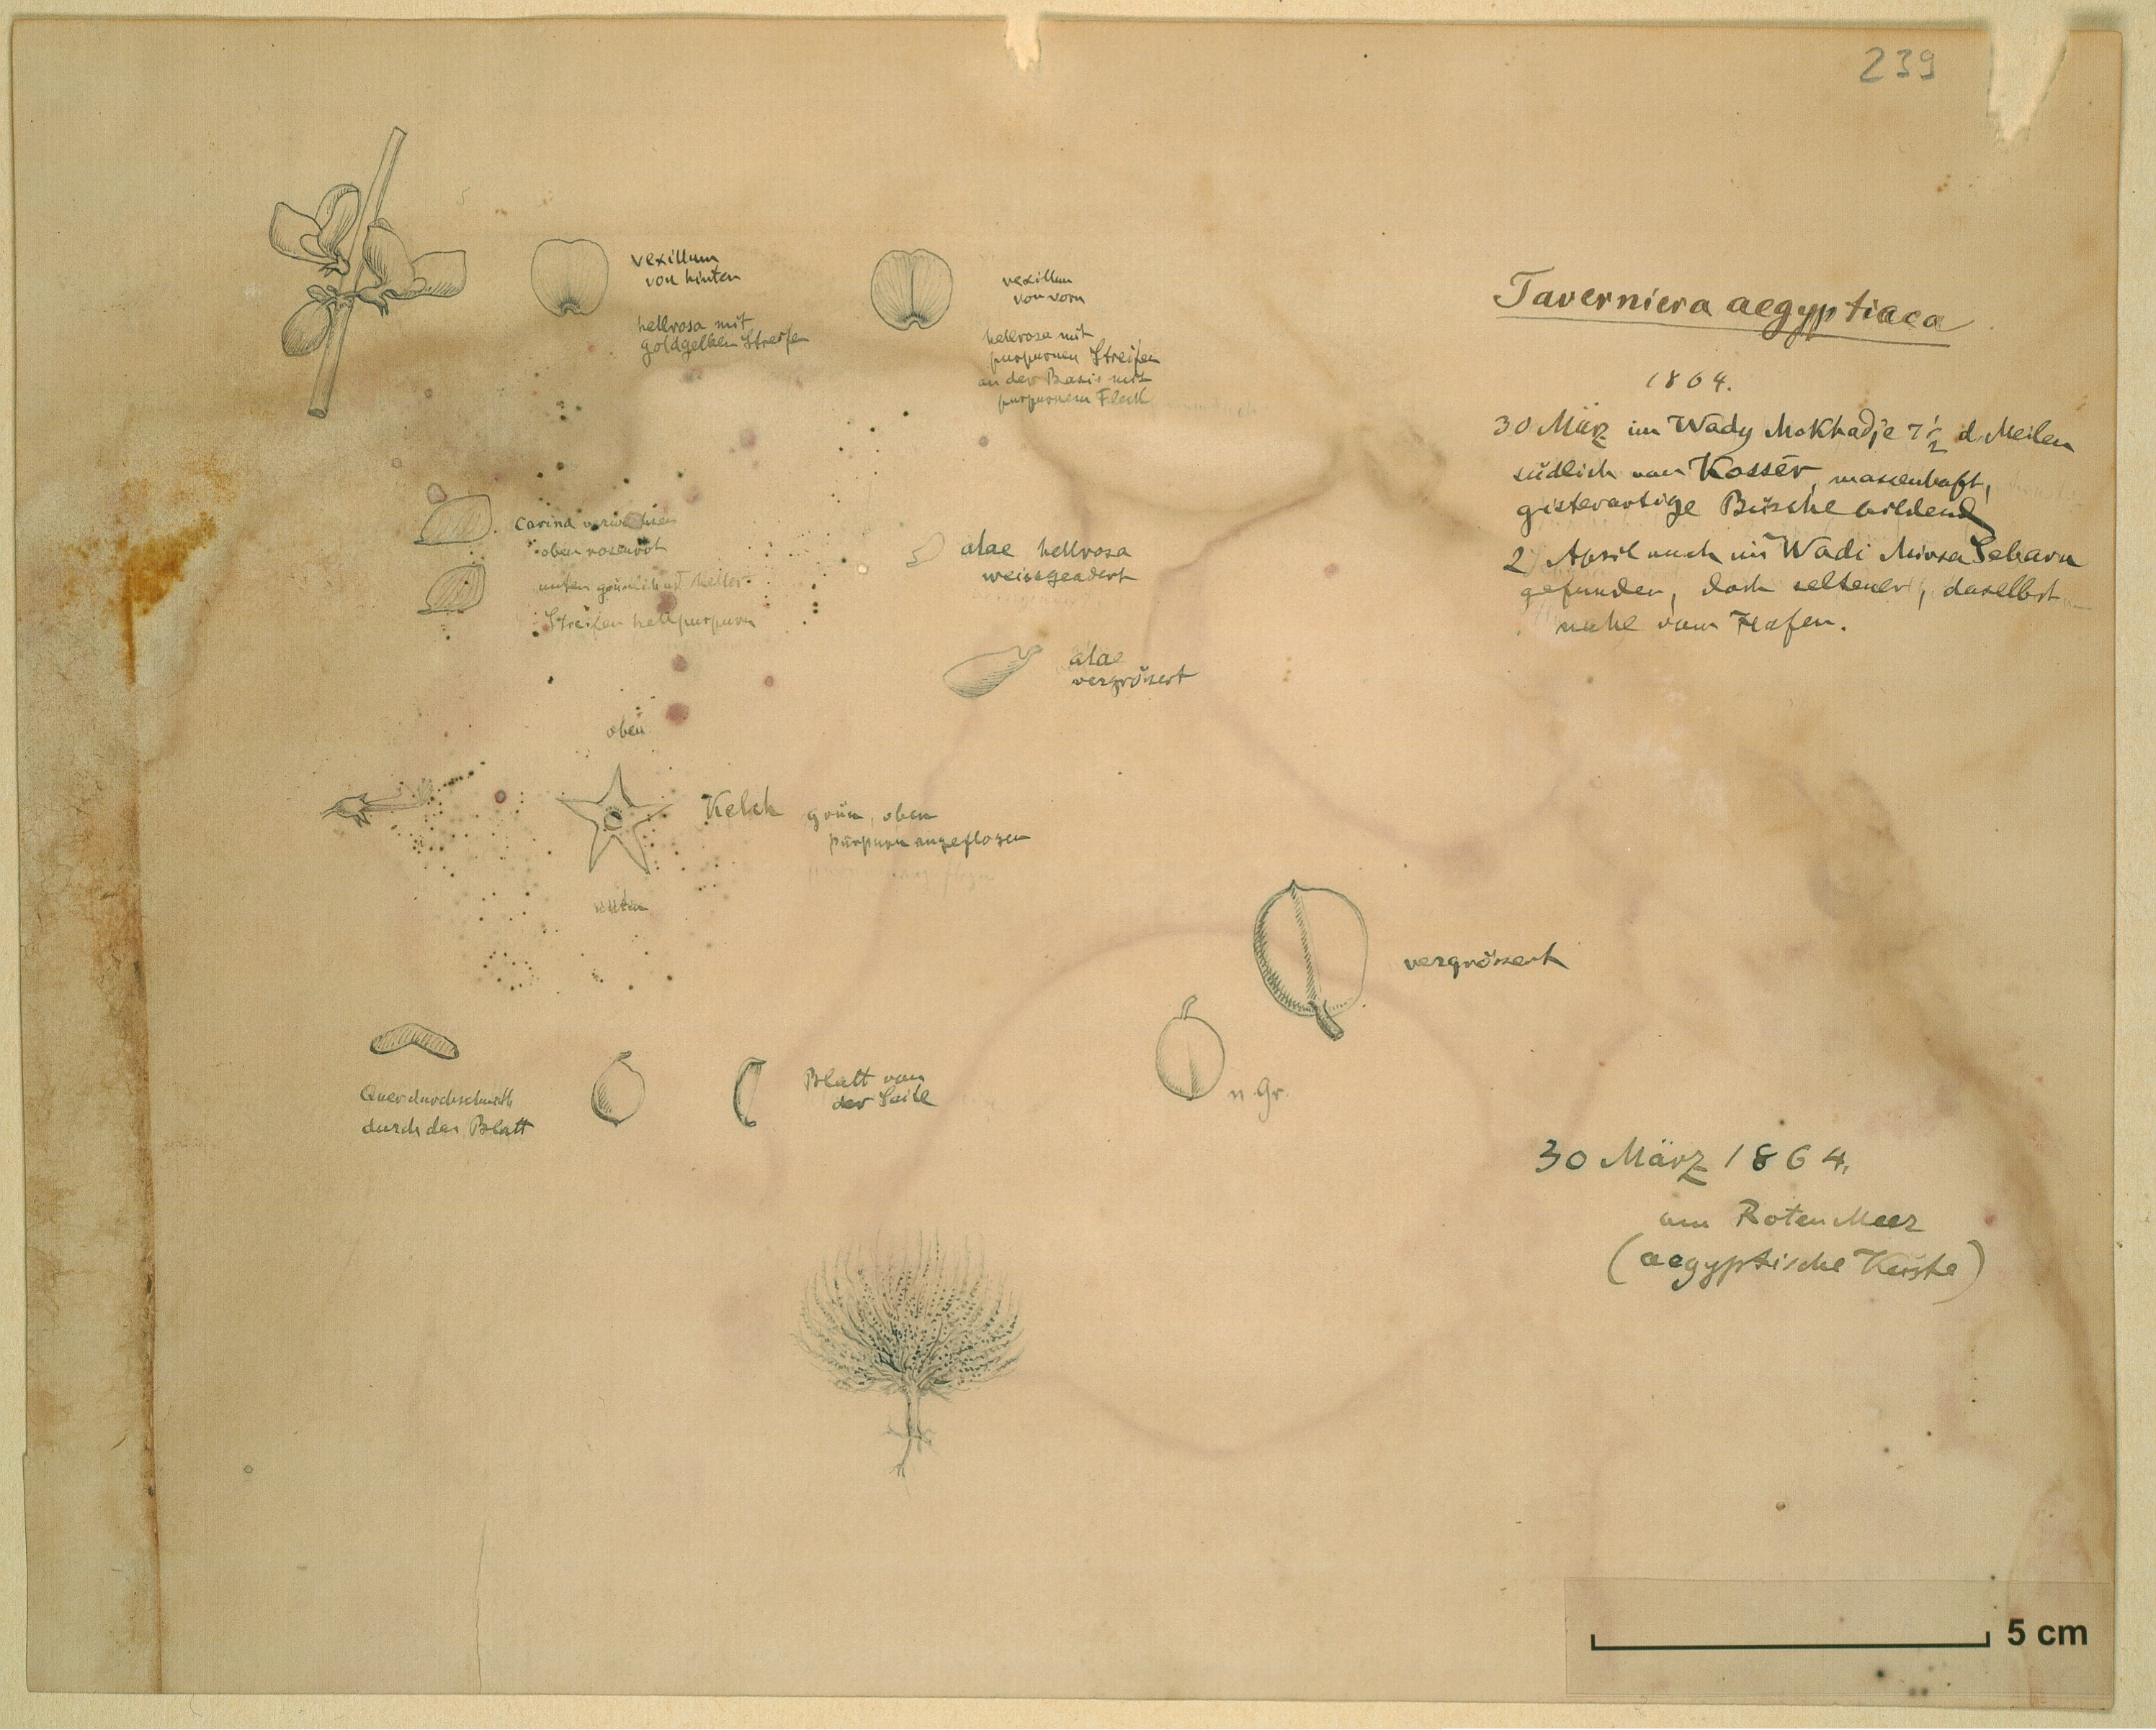 239
vexillum
von hinten
hellrosa mit
goldgelben Streifen
vexillum
von vorn
hellrosa mit
purpurnen Streifen
an der Basis mit
purpurnem Fleck
Taverniera aegyptiaca
1864.
30 März im Wady Mokhadje 7 1/2 d. Meilen
südlich von Kossēr, massenhaft,
gisterartige Büsche bildend
2) April auch im Wadi Mirsa
gefunden, doch seltener, daselbst
nahe vom Hafen.
Carina verwachsen
oben rosenrot
unten grünlich mit heller
Streifen hellpurpurn
alae hellrosa
weissgeadert
alae
vergrössert
oben
Kelch grün, oben
purpurn angeflogen
unten
vergrössert
n. Gr.
Querdurchschnitt
durch das Blatt
Blatt von
der Seite
30 März 1864.
am Roten Meer
(aegyptische Küste)
5 cm